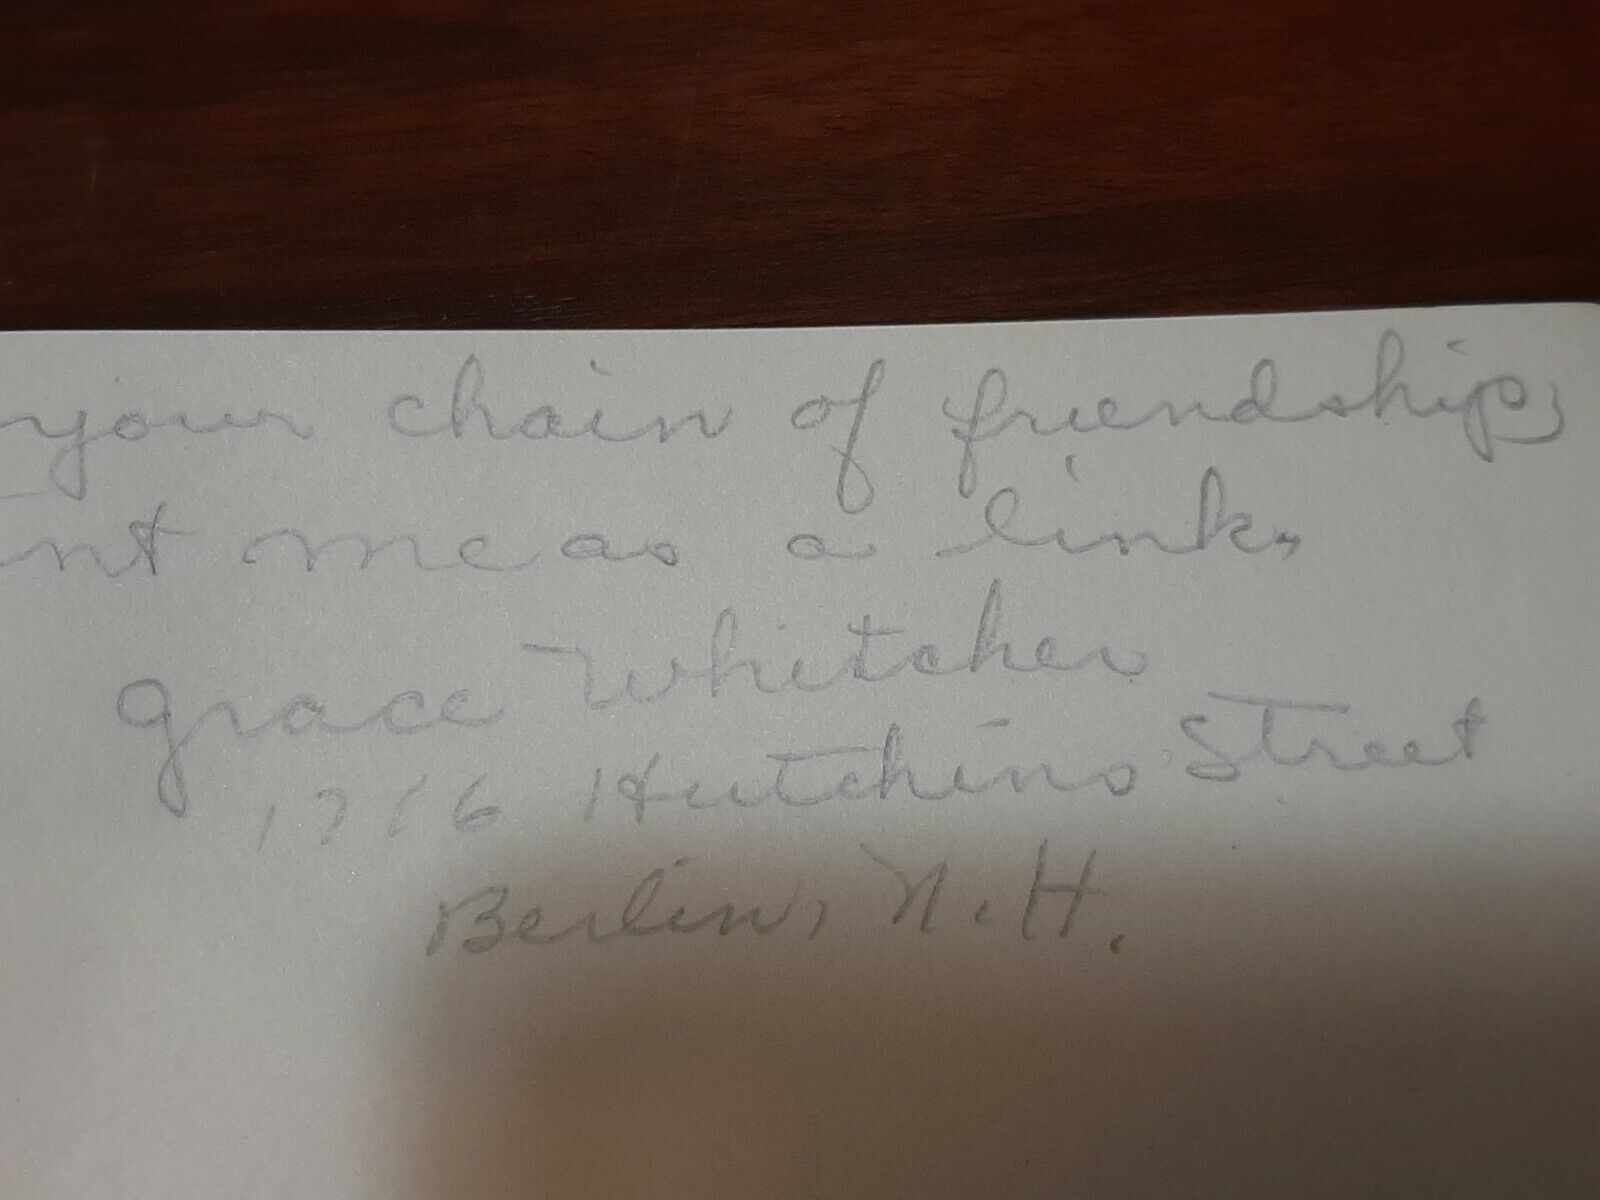 your chain of friendship,
nt me as a link.
Grace Whitcher
1716 Hutchins Street
Berlin, N.H.